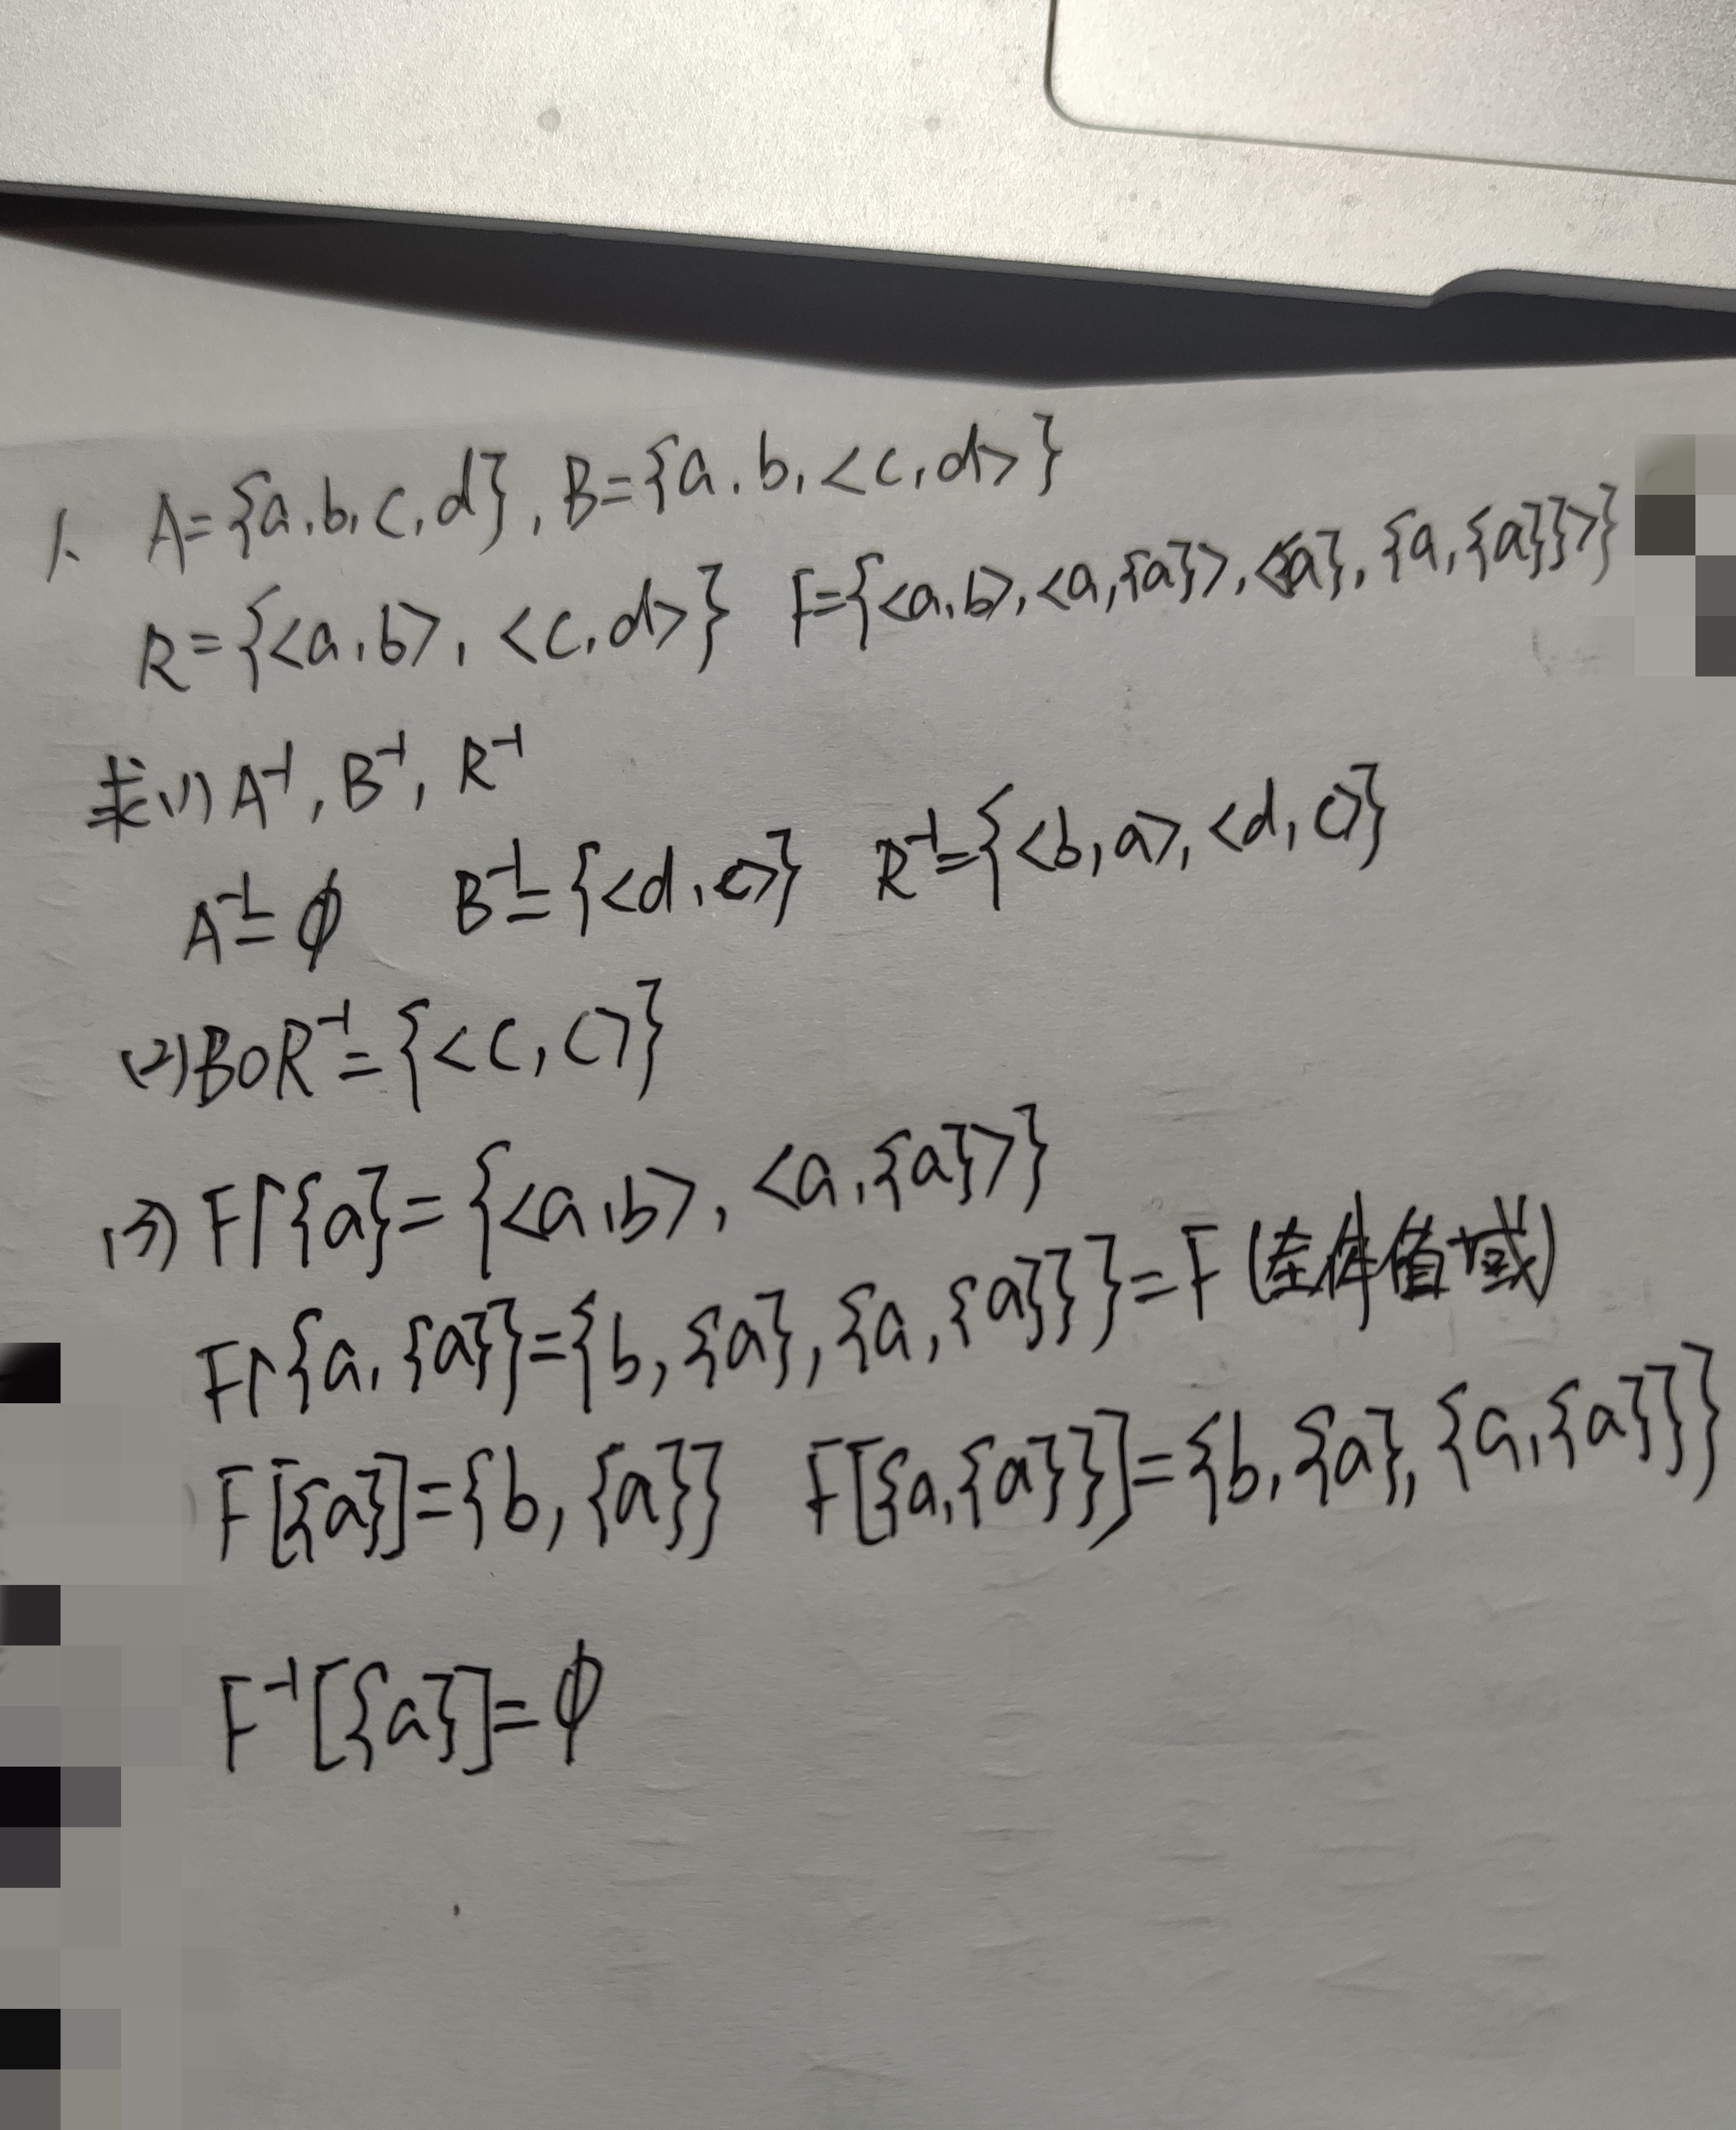 1、 A={a,b,c,d}, B={a,b,<c,d>}
R={<a,b>, <c,d>} F={<a,b>,<a,{a}>,<{a},{a,{a}}>}
求(1) A⁻¹, B⁻¹, R⁻¹
A⁻¹=ϕ B⁻¹={<d,c>} R⁻¹={<b,a>,<d,c>}
(2) BOR⁻¹={<c,c>}
(3) F↾{a}={<a,b>, <a,{a}>}
F↾{a,{a}}={b,{a},{a,{a}}}=F (全体值域)
F[{a}]={b,{a}} F[{a,{a}}]={b,{a},{a,{a}}}
F⁻¹[{a}]=ϕ